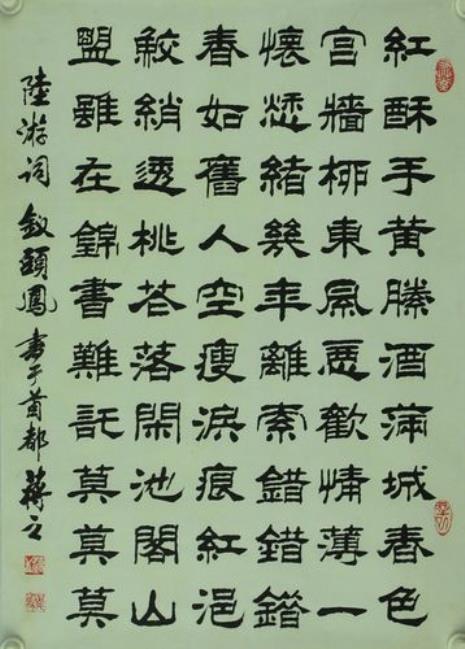 紅酥手黄縢酒滿城春色
宫牆柳東風惡歡情薄一
懷愁緒幾年離索錯錯錯
春如舊人空瘦淚痕紅浥
鮫綃透桃花落閑池閣山
盟雖在錦書難託莫莫莫
陸游词釵頭鳳書于首都蒋立